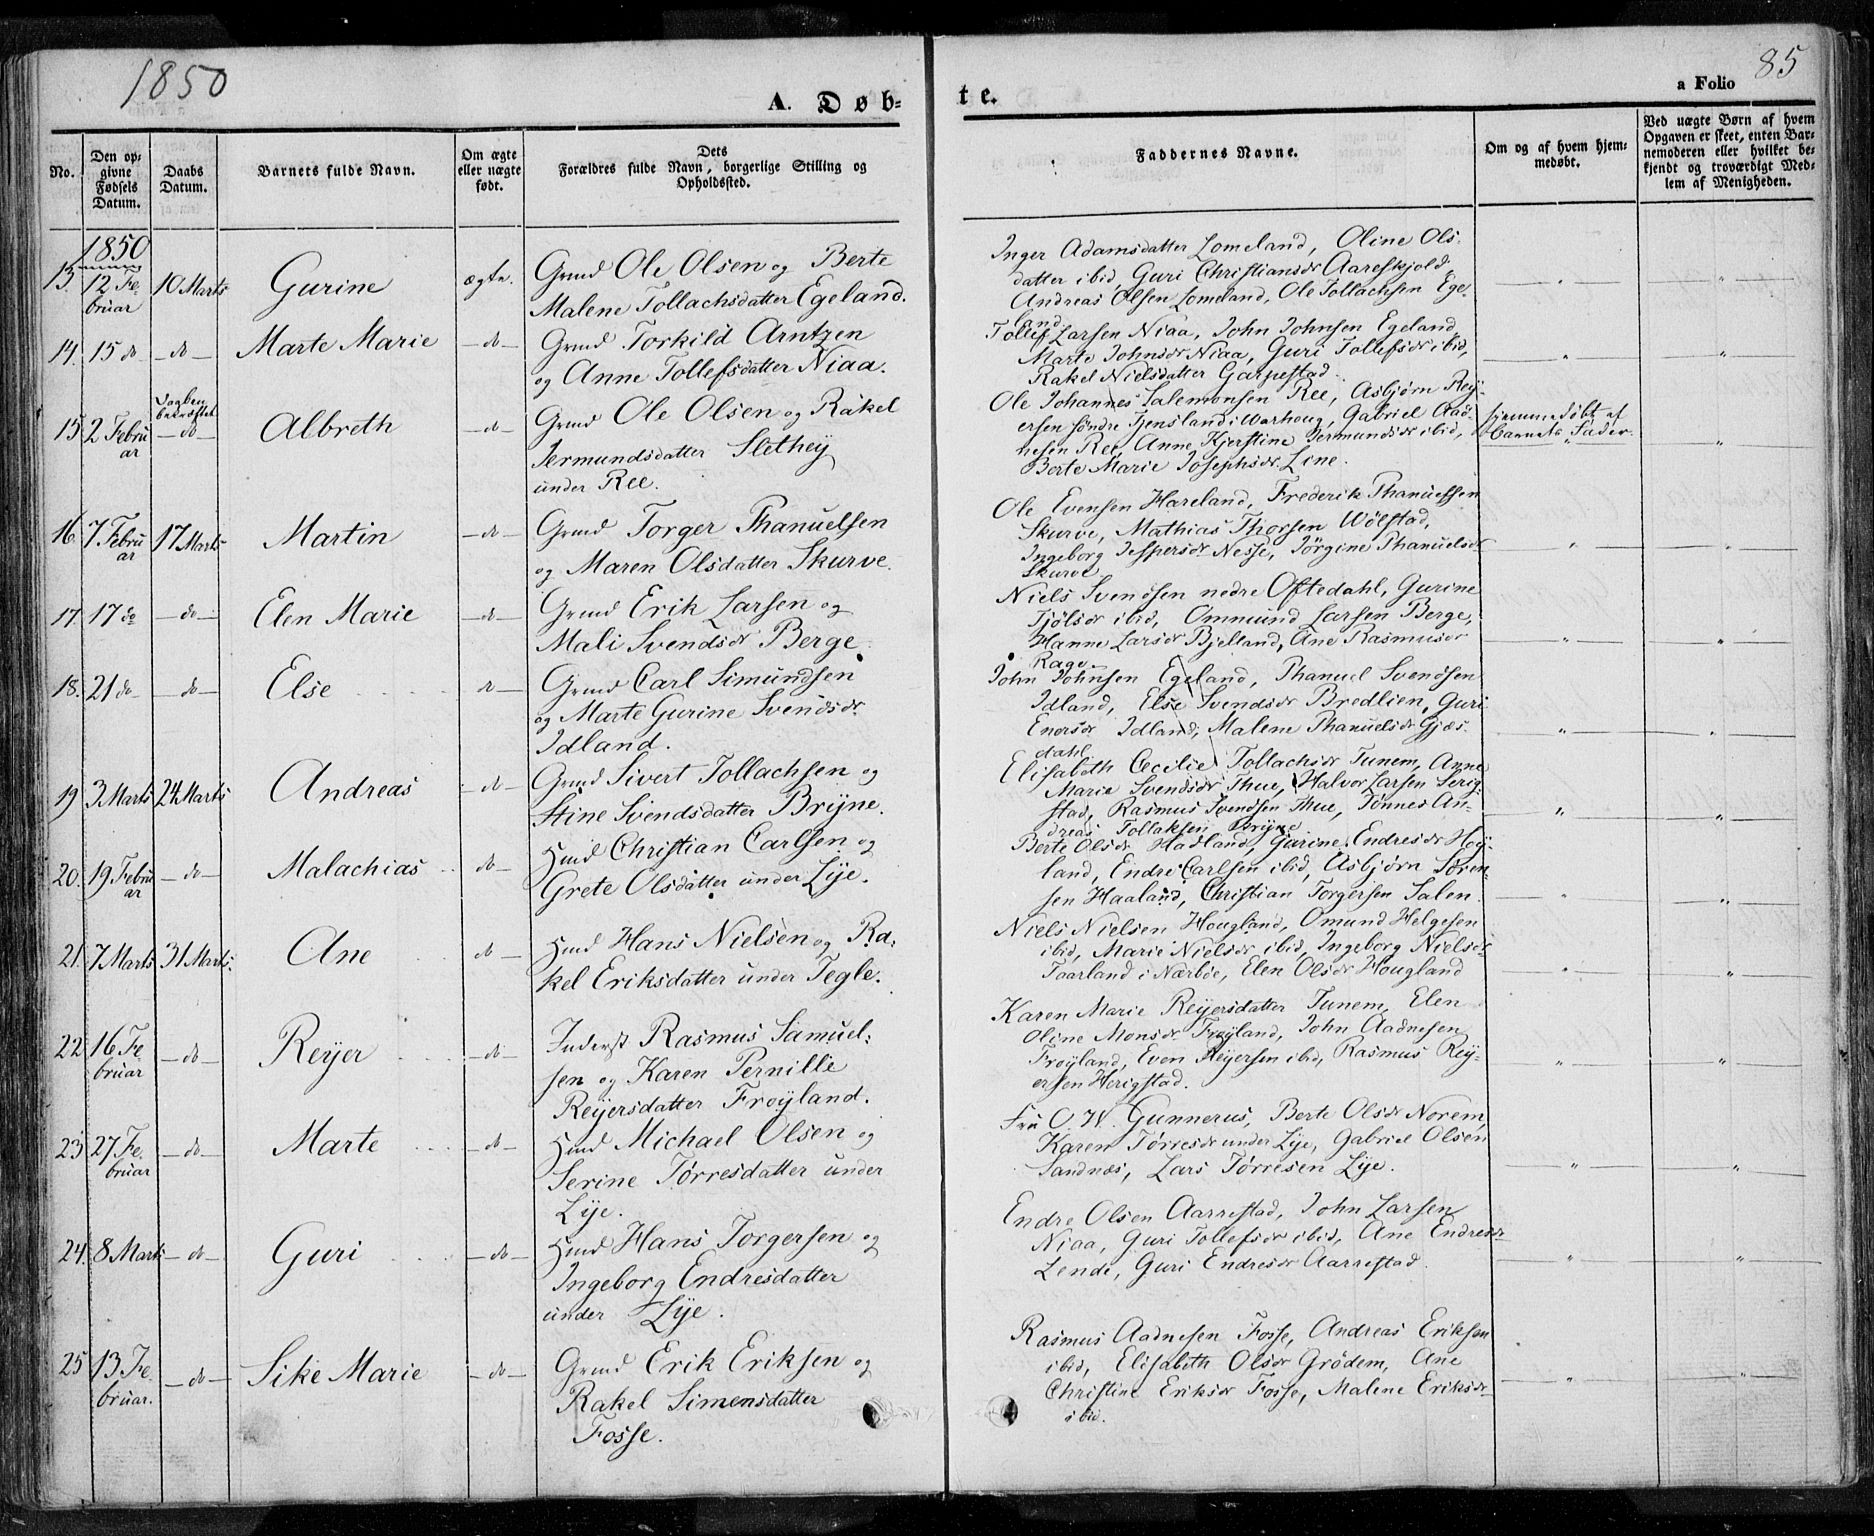 1850
85
A. Døb-
te.
a Folio
No.
Den op-
givne
Fødsels
Datum.
Daabs
Datum.
Barnets fulde Navn.
Om ægte
eller uægte
født.
Dets
Forældres fulde Navn, borgerlige Stilling og
Opholdssted.
Faddernes Navne.
Om og af hvem hjem-
medøbt.
Ved uægte Børn af hvem
Opgaven er skeet, enten Bar-
nemoderen eller hvilket be-
kjendt og troværdigt Med-
lem af Menigheden.
1850
13. 12 Fe-
bruar
10 Marts
Gurine
ægte.
Gmd Ole Olsen og Berte
Malene Tollachsdatter Egeland.
Inger Adamsdatter Lomeland, Oline Ols-
datter ibid, Guri Christiansdr Aareskjold,
Andreas Olsen Lomeland, Ole Tollachsen Ege-
land
14. 15 do
do
Marte Marie
do
Gmd Torkild Arntzen
og Anne Tollefsdatter Niaa.
Tollef Larsen Niaa, John Johnsen Egeland,
Marte Johnsdr Niaa, Guri Tollefsdr ibid,
Rakel Nielsdatter Garpestad
15. 2 Febru
ar
Daaben
bekræftet
do
Albreth
do
Gmd Ole Olsen og Rakel
Jermundsdatter Slethey
under Ree.
Ole Johannes Salemonsen Ree, Asbjørn Rey-
ersen søndre Tjensland i Warhoug, Gabriel Aad-
nesen Ree, Anne Kjerstine Jermundsdr ibid,
Berte Marie Josephsdr Line.
hjemmedøbt af
Barnets Fader.
16. 7 Febru
ar
17 Marts
Martin
do
Gmd Torger Thanuelsen
og Maren Olsdatter Skurve.
Ole Evensen Hareland, Frederik Thanuelsen
Skurve, Mathias Thorsen Wølstad,
Ingeborg Jespersdr Nesse, Jørgine Thanuelsdr
Skurve
17. 17 do
do
Elen Marie
do
Gmd Erik Larsen og
Mali Svendsdr Berge.
Niels Svendsen nedre Oftedahl, Gurine
Tjølsdr ibid, Ommund Larsen Berge,
Hanne Larsdr Bjelland, Ane Rasmusdr
Rage
18. 21 do
do
Else
do
Gmd Carl Simundsen
og Marte Gurine Svendsdr
Idland.
John Johnsen Egeland, Thanuel Svendsen
Idland, Else Svendsdr Bredlien, Guri
Enersdr Idland, Malene Thanuelsdr Gjes-
dahl
19. 3 Marts
24 Marts
Andreas
do
Gmd Sivert Tollachsen og
Stine Svendsdatter Bryne.
Elisabeth Cecilie Tollachsdr Tunem, Anne
Marie Svendsdr Thue, Halvor Larsen Serig-
stad, Rasmus Svendsen Thue, Tønnes An-
dreas Tollaksen Bryne
20. 19 Febru
ar
do
Malachias
do
Hmd Christian Carlsen og
Grete Olsdatter under Lye.
Berte Olsdr Hadland, Gurine Endresdr Høy-
land, Endre Carlsen ibid, Asbjørn Søren-
sen Haaland, Christian Torgersen Salen
21. 7 Marts
31 Marts.
Ane
do
Hmd Hans Nielsen og Ra-
kel Eriksdatter under Tegle.
Niels Nielsen Hougland, Omund Helgesen
ibid, Marie Nielsdr ibid, Ingeborg Nielsdr
Taarland i Nærbøe, Elen Olsdr Hougland
22. 16 Fe-
bruar
do
Reyer
do
Inderst Rasmus Samuel-
sen og Karen Pernille
Reyersdatter Frøyland.
Karen Marie Reyersdatter Tunem, Elen
Oline Monsdr Frøyland, John Aadnesen
Frøyland, Even Reyersen ibid, Rasmus Rey-
ersen Herigstad.
23. 27 Fe.
bruar
do
Marte
do
Hmd Michael Olsen og
Serine Tørresdatter under
Lye.
Fru O. W. Gunnerus, Berte Olsdr Norem,
Karen Tørresdr under Lye, Gabriel Olsen
Sandnæs, Lars Tørresen Lye.
24. 8 Marts
do
Guri
do
Hmd Hans Torgersen og
Ingeborg Endresdatter
under Lye.
Endre Olsen Aarrestad, John Larsen
Niaa, Guri Tollefsdr ibid, Ane Endresdr
Lende, Guri Endresdr Aarrestad
25 13 Fe-
bruar.
do
Sike Marie
do
Gmd Erik Eriksen og
Rakel Simensdatter
Fosse.
Rasmus Aadnesen Fosse, Andreas Eriksen
ibid, Elisabeth Olsdr Grødem, Ane
Christine Eriksdr Fosse, Malene Eriksdr
ibid.